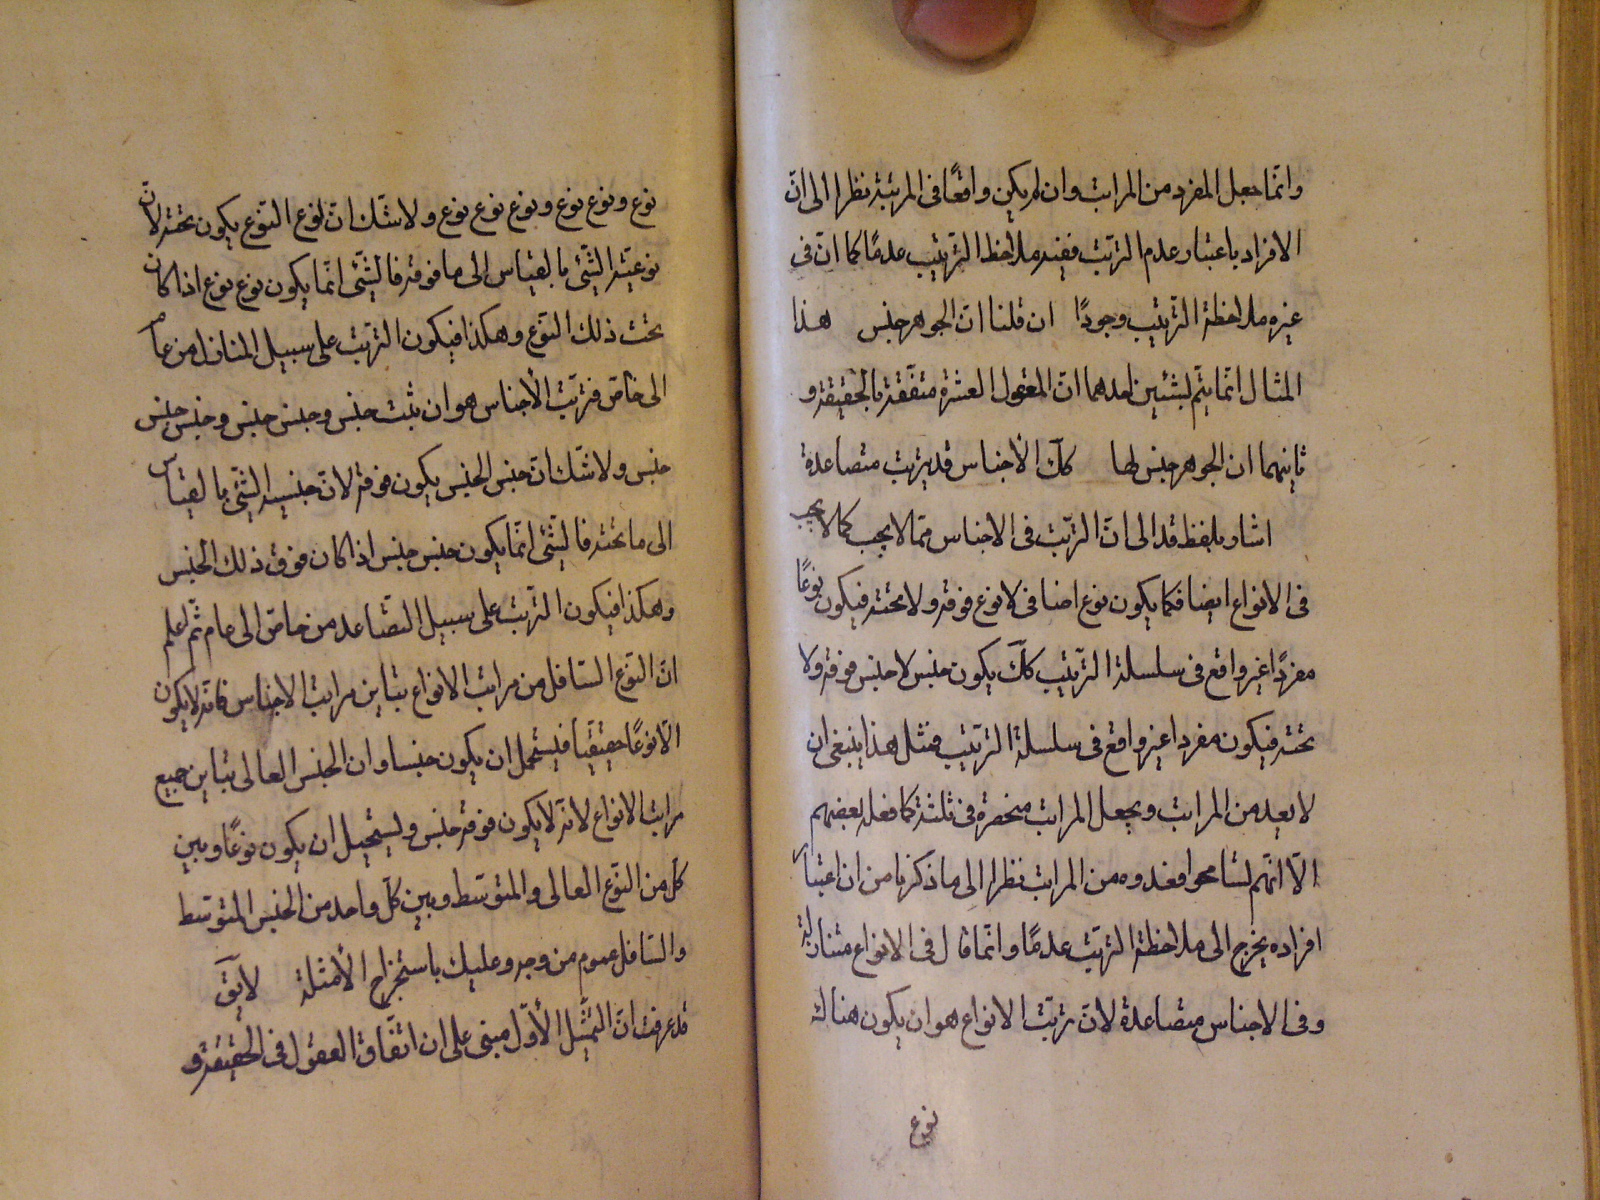 وانما جعل المفرد من المراتب وان لم يكن واقعًا فى المرتبة نظرا الى انّ
الافراد باعتبار عدم الترتّب ففيه ملاحظ الترتيب عدمًا كما انّ فى
غيره ملاحظة الترتيب وجودًا ان قلنا انّ الجوهر جنس هذا
المثال انّما يتم بشيئين احدهما انّ العقول العشرة متفّقة بالحقيقة و
ثانيهما ان الجوهر جنس لها كك الأجناس قد يترتب متصاعدة
اشار بلفظ قد الى انّ الترتّب فى الاجناس ممّا لا يجب كما لا يجب
فى الانواع ايضا فكما يكون نوع اضافى لا نوع فوقه ولا تحته فيكون نوعًا
مفردًا غير واقع فى سلسلة الترتيب كك يكون جنس لا جنس فوقه ولا
تحته فيكون مفردا غير واقع فى سلسلة الترتيب فمثل هذا ينبغى ان
لا يعد من المراتب ويجعل المراتب منحصرة فى ثلثة كما فعله بعضهم
الّا انّهم تسامحوا فعدوه من المراتب نظرا الى ما ذكرنا من ان اعتبار
افراده يخرج الى ملاحظة الترتّب عدمًا وانّما قال فى الانواع متنازلة
وفى الاجناس متصاعدة لانّ ترتّب الانواع هو ان يكون هناك
نوع
نوع ونوع نوع ونوع نوع نوع ولا شّك انّ نوع النّوع يكون تحته لانّ
نوعيّة الشّئ بالقياس الى ما فوقه فالشّئ انّما يكون نوع نوع اذا كان
تحت ذلك النّوع وهكذا فيكون الترتّب على سبيل التنازل من عام
الى خاصّ فترتّب الأجناس هو ان يثبت جنس وجنس جنس وجنس جنس
جنس ولا شّك انّ جنس الجنس يكون فوقه لانّ جنسية الشّئ بالقياس
الى ما تحته فالشّئ انّما يكون جنس جنس اذا كان فوق ذلك الجنس
وهكذا فيكون الترتّب على سبيل التّصاعد من خاصّ الى عام ثّم اعلم
انّ النّوع السّافل من مراتب الانواع يباين مراتب الاجناس فانّه لا يكون
الّا نوعًا حقيقّيا فيستحيل ان يكون جنسا وان الجنس العالى يباين جميع
مراتب الانواع لانّه لا يكون فوقه جنس ويستحيل ان يكون نوعًا وبين
كلّ من النّوع العالى والمتوسّط وبين كلّ واحد من الجنس المتوسّط
والسّافل عموم من وجه وعليك باستخراج الأمثلة لايَقَ
قد عرفت انّ التمثيل الأوّل مبنى على ان اتّفاق العقول فى الحقيقة و